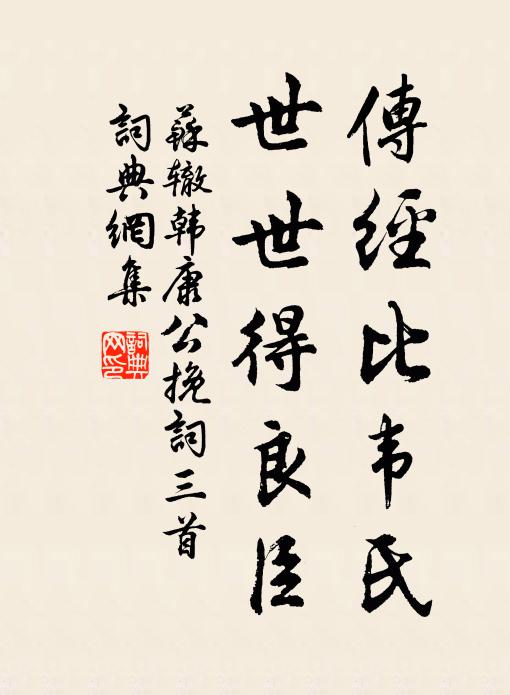 傳經比韦氏
世世得良臣
蘇辙韩康公挽詞三首
詞典網集
詞典网印